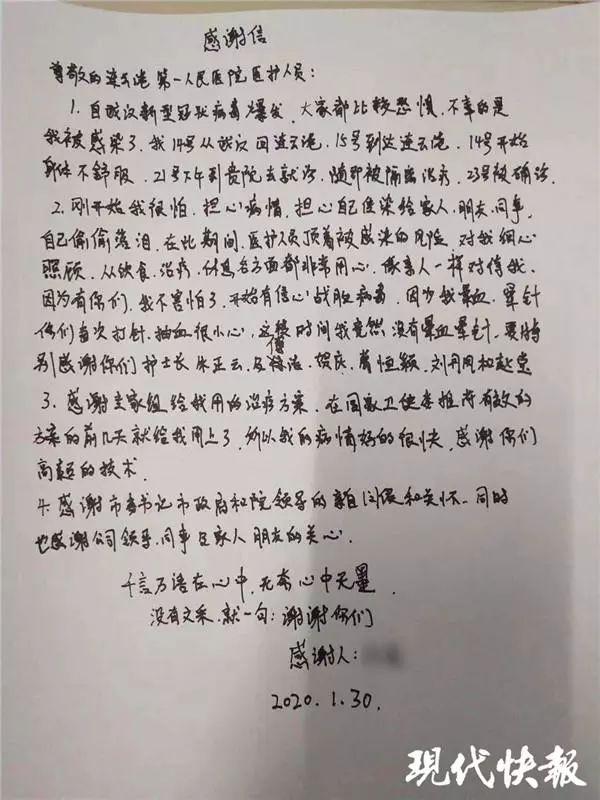 感谢信
尊敬的连云港第一人民医院医护人员：
1. 自武汉新型冠状病毒爆发，大家都比较恐惧，不幸的是
我被感染了，我14号从武汉回连云港，15号到达连云港，14号开始
身体不舒服，21号下午到贵院去就诊，随即被隔离治疗，23号被确诊。
2. 刚开始我很怕，担心病情，担心自己传染给家人，朋友，同事，
自己偷偷落泪，在此期间，医护人员顶着被感染的风险，对我细心
照顾，从饮食，治疗，休息各方面都非常用心，像亲人一样对待我，
因为有你们，我不害怕了，开始有信心战胜病毒，因为我晕血，晕针
你们每次打针，抽血很小心，这些时间我竟然没有晕血晕针，要特
别感谢你们护士长朱正云，
刘丹凤和赵莹
3. 感谢专家组给我用的治疗方案，在国家卫健委推荐有效的
方案的前几天就给我用上了，所以我的病情好的很快，感谢你们
高超的技术.
4. 感谢市委书记市政府和院领导的亲自问候和关怀，同时
也感谢公司领导，同事及家人朋友的关心.
千言万语在心中，无奈心中无墨.
没有文采，就一句：谢谢你们
感谢人：
2020.1.30.
现代快报